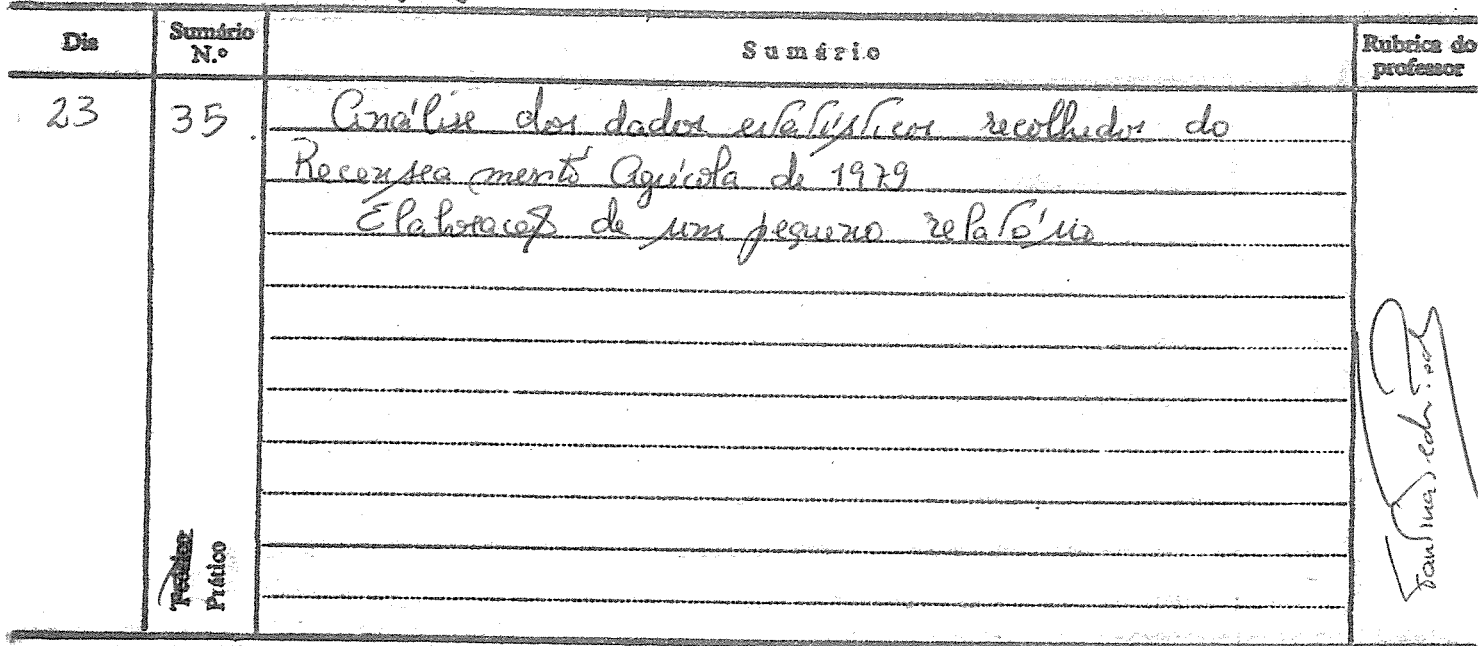 Dia
Sumário N.º
Sumário
Rubrica do professor
23
35
Análise dos dados estatísticos recolhidos do
Recenseamento Agrícola de 1979
Elaboração de um pequeno relatório
Teórico
Prático